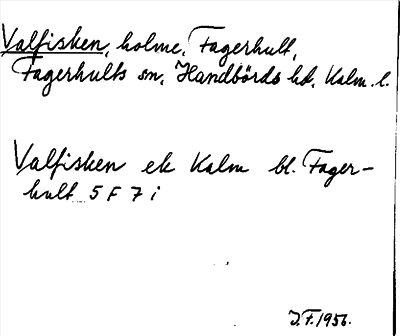 Valfisken, holme, Fagerhult,
Fagerhults sn, Handbörds hd, Kalm. l.
Valfisken ek Kalm bl. Fager-
hult 5 F 7 i
J.F. 1956.